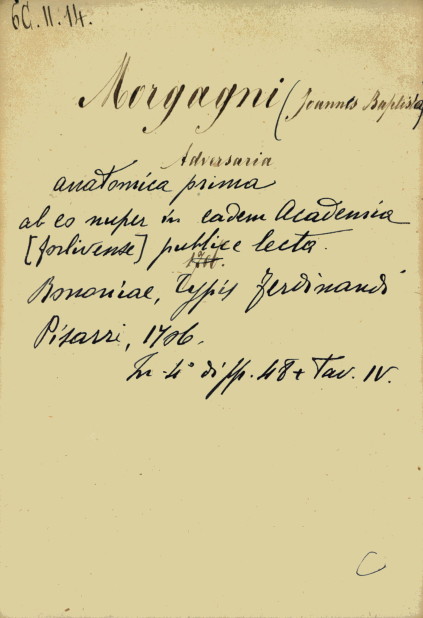 6C. II. 14.
Morgagni (Joannes Baptista)
Adversaria
anatomica prima
ab eo nuper in eadem Academia
[forlivense] publice lecta.
Bononiae, Typis Ferdinandi
Pisarri, 1706.
In-4° di pp. 48 + Tav. IV.
C